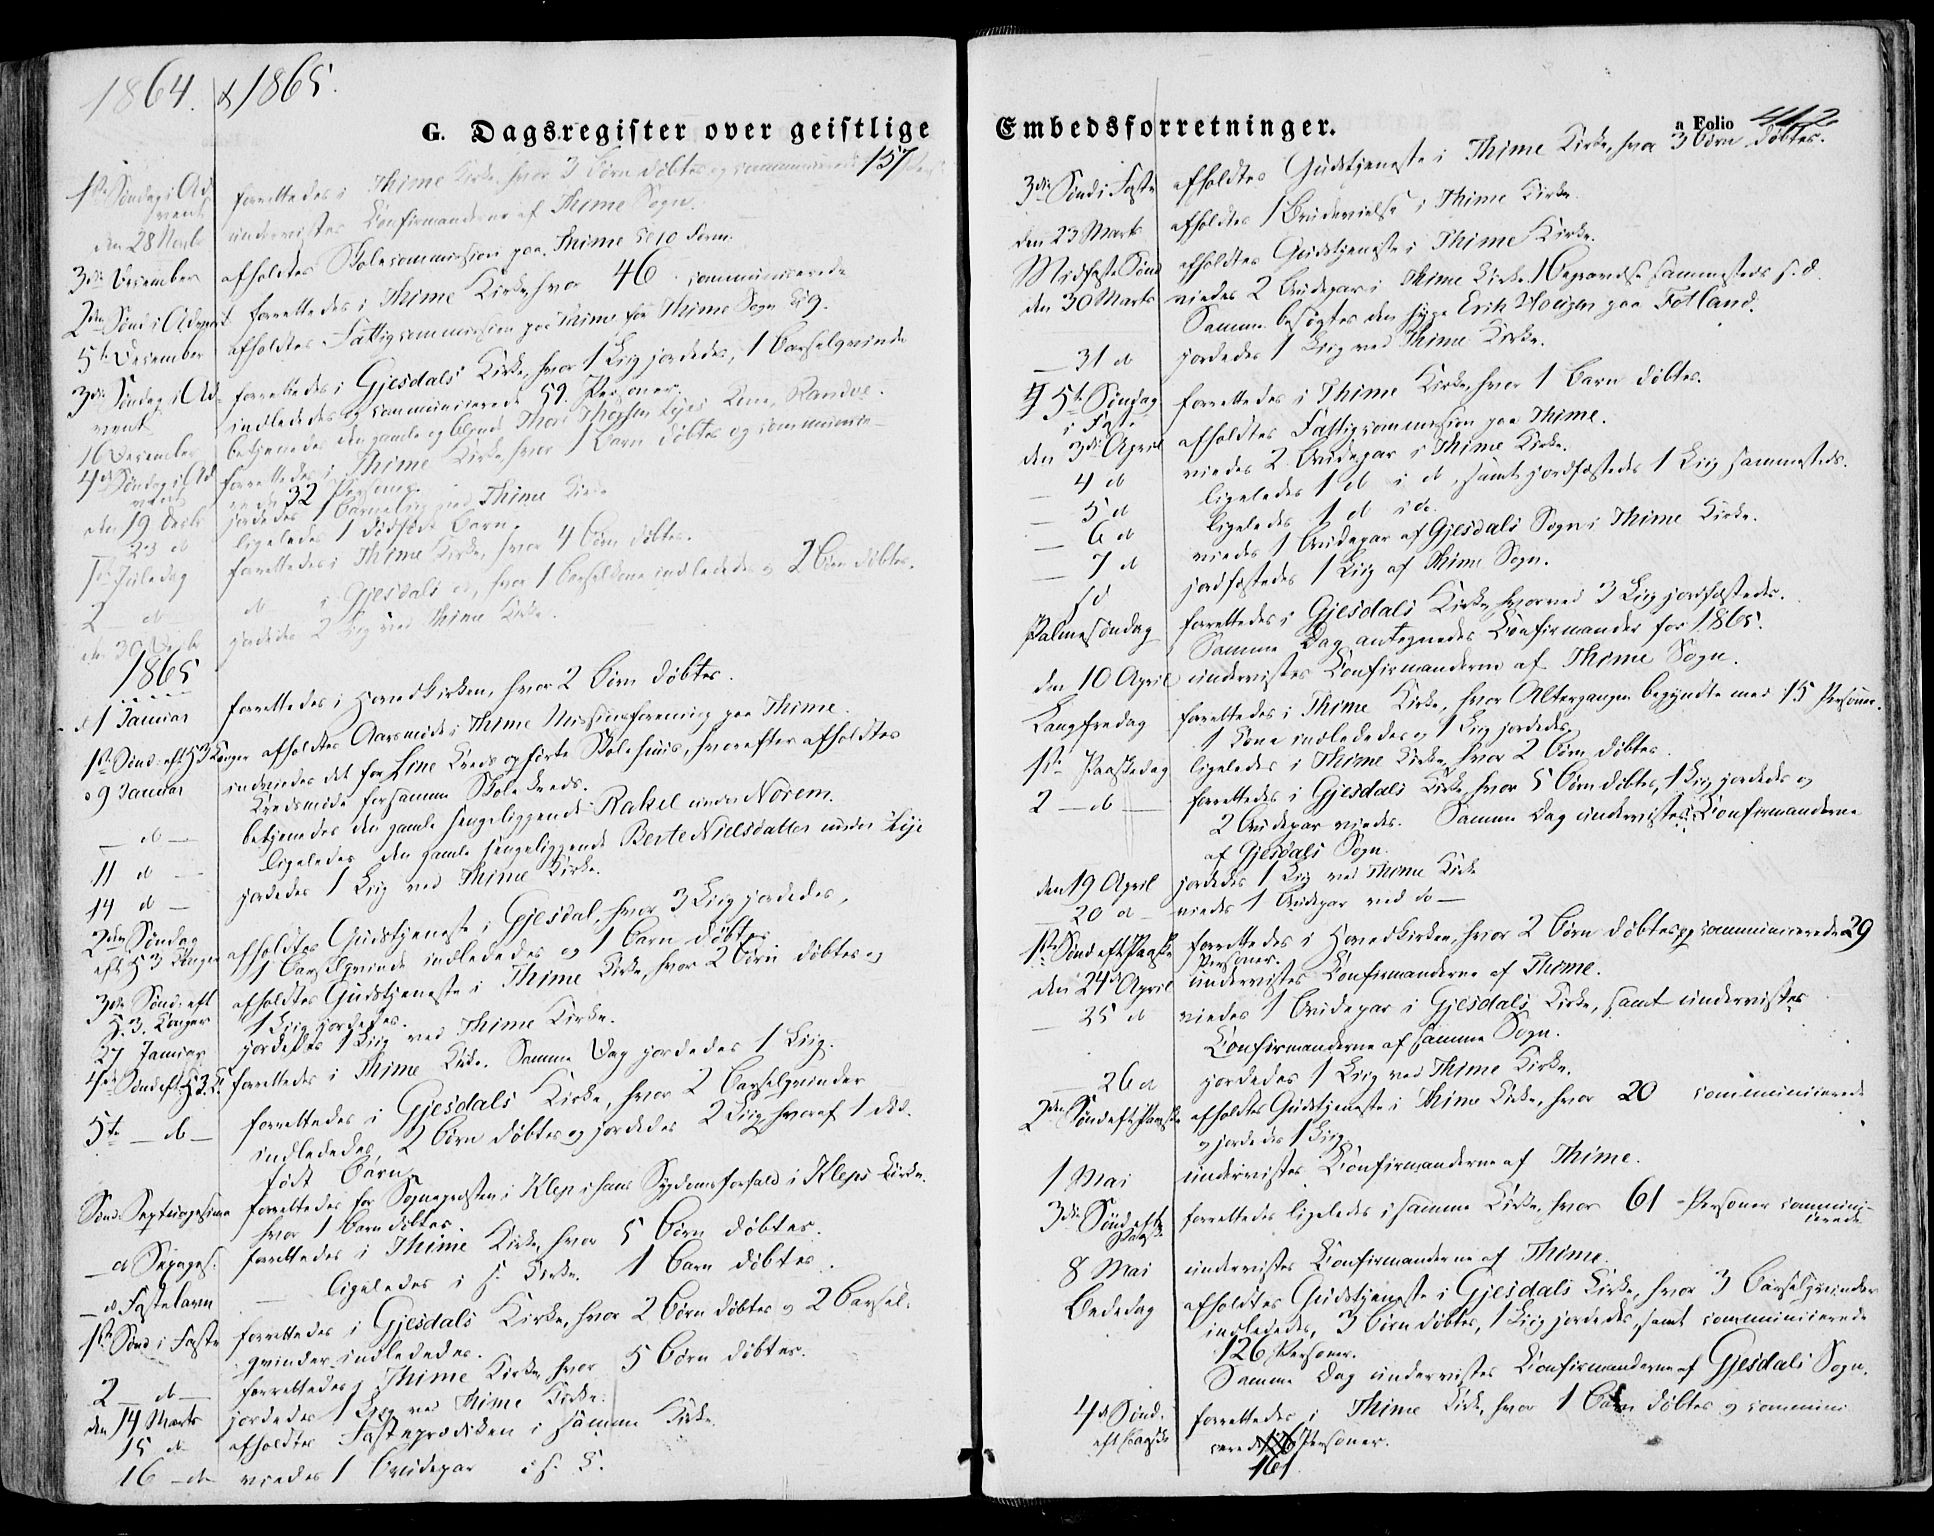 1864. & 1865.
G. Dagsregister over geistlige
1ste Søndag i Ad- forrettedes i Thime Kirke, hvor 3 Børn døbtes og communicerede 157 Pers.
vent
den 28 Novbr undervistes Confirmanderne af Thime Sogn.
3die December afholdtes Skolecommission paa Thime Kl 10 Form.
2den Sønd i Advent forrettedes i Thime Kirke, hvor 46 communicerede
5te December afholdtes Fattigcommission paa Thime for Thime Sogn Kl 9.
3die Søndag i Ad- forrettedes i Gjesdals Kirke, hvor 1 Liig jordedes, 1 Barselqvinde
vent indlededes og communicerede 59 Personer.
16 December betjenedes den gamle og blinde Thore Kone, Randve.
4de Søndag i Ad- forrettedes i Thime Kirke, hvor 1 Barn døbtes og communice-
vent rede 32 Personer.
den 19 Decbr jordedes 1 Barnelig ved Thime Kirke
23 do ligeledes 1 dødfødt Barn.
1ste Juledag forrettedes i Thime Kirke, hvor 4 Børn døbtes.
2 do do i Gjesdals do, hvor 1 Barselkone indlededes og 2 Børn døbtes.
den 30 Decbr jordedes 2 Liig ved Thime Kirke.
1865
d 1 Januar forrettedes i Hovedkirken, hvor 2 Børn døbtes.
1ste Sønd. eft. H 3 Konger afholdtes Aarsmøde i Thime Missionsforening paa Thime.
d 9 Januar indviedes det for Line Kreds opførte Skolehuus, hvorefter afholdtes
Kredsmøde for samme Skolekreds.
— do — betjenedes den gamle sengeliggende Rakel under Norem.
11 do — ligeledes den gamle sengeliggende Berte Nielsdatter under Lye
14 do — jordedes 1 Liig ved Thime Kirke.
2den Søndag afholdtes Gudstjeneste i Gjesdal, hvor 3 Liig jordedes,
eft H 3 Konger 1 Barselqvinde indlededes og 1 Barn døbtes
3die Sønd. eft afholdtes Gudstjeneste i Thime Kirke, hvor 2 Børn døbtes og
H. 3. Konger 1 Liig jordedes.
27 Januar jordedes 1 Liig ved Thime Kirke.
4de Sønd eft. H 3. K. forrettedes i Thime Kirke. Samme Dag jordedes 1 Liig.
5te — do — forrettedes i Gjesdals Kirke, hvor 2 Barselqvinder
indlededes, 2 Børn døbtes og jordedes 2 Liig, hvoraf 1 død-
født Barn
Sønd. Septuagesima forrettedes for Sognepræsten i Klep i hans Sygdomsforfald i Kleps Kirke,
hvor 1 Barn døbtes.
— do Sexages. forrettedes i Thime Kirke, hvor 5 Børn døbtes.
— do Fastelavn — ligeledes i s. Kirke. 1 Barn døbtes.
1ste Sønd i Faste forrettedes i Gjesdals Kirke, hvor 2 Børn døbtes og 2 Barsel-
qvinder indlededes.
2 — do — forrettedes i Thime Kirke, hvor 5 Børn døbtes.
den 14 Marts jordedes 1 Liig ved Thime Kirke.
15 do afholdtes Fasteprædiken i samme Kirke.
16 — do viedes 1 Brudepar i s. K.
Embedsforretninger.
a Folio 412
3die Sønd i Faste afholdtes Gudstjeneste i Thime Kirke, hvor 3 Børn døbtes.
den 23 Marts afholdtes 1 Brudevielse i Thime Kirke.
Midfaste Sønd afholdtes Gudstjeneste i Thime Kirke.
den 30 Marts viedes 2 Brudepar i Thime Kirke. 1 sammesteds s. d.
Samme besøgtes den syge Erik paa Fotland.
— 31 do jordedes 1 Liig ved Thime Kirke.
5te Søndag forrettedes i Thime Kirke, hvor 1 Barn døbtes.
i Faste
den 3die April afholdtes Fattigcommission paa Thime.
— 4 do viedes 2 Brudepar i Thime Kirke.
— 5 do ligeledes 1 do i do, samt jordfæstedes 1 Liig sammesteds.
— 6 do ligeledes 1 do i do.
— 7 do viedes 1 Brudepar af Gjesdals Sogn i Thime Kirke.
s d jordfæstedes 1 Liig af Thime Sogn.
Palmesøndag forrettedes i Gjesdals Kirke, hvorved 3 Liig jordfæstedes.
Samme Dag antegnedes Confirmander for 1865.
den 10 April undervistes Confirmanderne af Thime Sogn.
Langfredag forrettedes i Thime Kirke, hvor Altergangen begyndte med 15 Personer.
1 Kone indlededes og 1 Liig jordedes.
1ste Paaskedag ligeledes i Thime Kirke, hvor 2 Børn døbtes.
2 — do — forrettedes i Gjesdals Kirke, hvor 5 Børn døbtes, 1 Liig jordedes og
2 Brudepar viedes. Samme Dag undervistes Confirmanderne
af Gjesdals Sogn.
den 19 April jordedes 1 Liig ved Thime Kirke
— 20 do — viedes 1 Brudepar ved do —
1ste Sønd eft Paaske forrettedes i Hovedkirken, hvor 2 Børn døbtes og communicerede 29
Personer.
den 24de April undervistes Confirmanderne af Thime.
— 25 do viedes 1 Brudepar i Gjesdals Kirke, samt undervistes
Confirmanderne af samme Sogn.
— 26 do jordedes 1 Liig ved Thime Kirke.
2den Sønd eft Paaske afholdtes Gudstjeneste i Thime Kirke, hvor 20 communicerede
og jordedes 1 Liig.
1 Mai undervistes Confirmanderne af Thime.
3die Sønd eft forrettedes ligeledes i samme Kirke, hvor 61 Personer communi-
Paaske cerede
8 Mai undervistes Confirmanderne af Thime.
Bededag afholdtes Gudstjeneste i Gjesdals Kirke, hvor 3 Barselqvinder
indlededes, 3 Børn døbtes, 1 Liig jordedes, samt communicerede
126 Personer.
Samme Dag undervistes Confirmanderne af Gjesdals Sogn.
4de Sønd. forrettedes i Thime Kirke, hvor 1 Barn døbtes og communi-
eft Paaske cerede Personer.
161